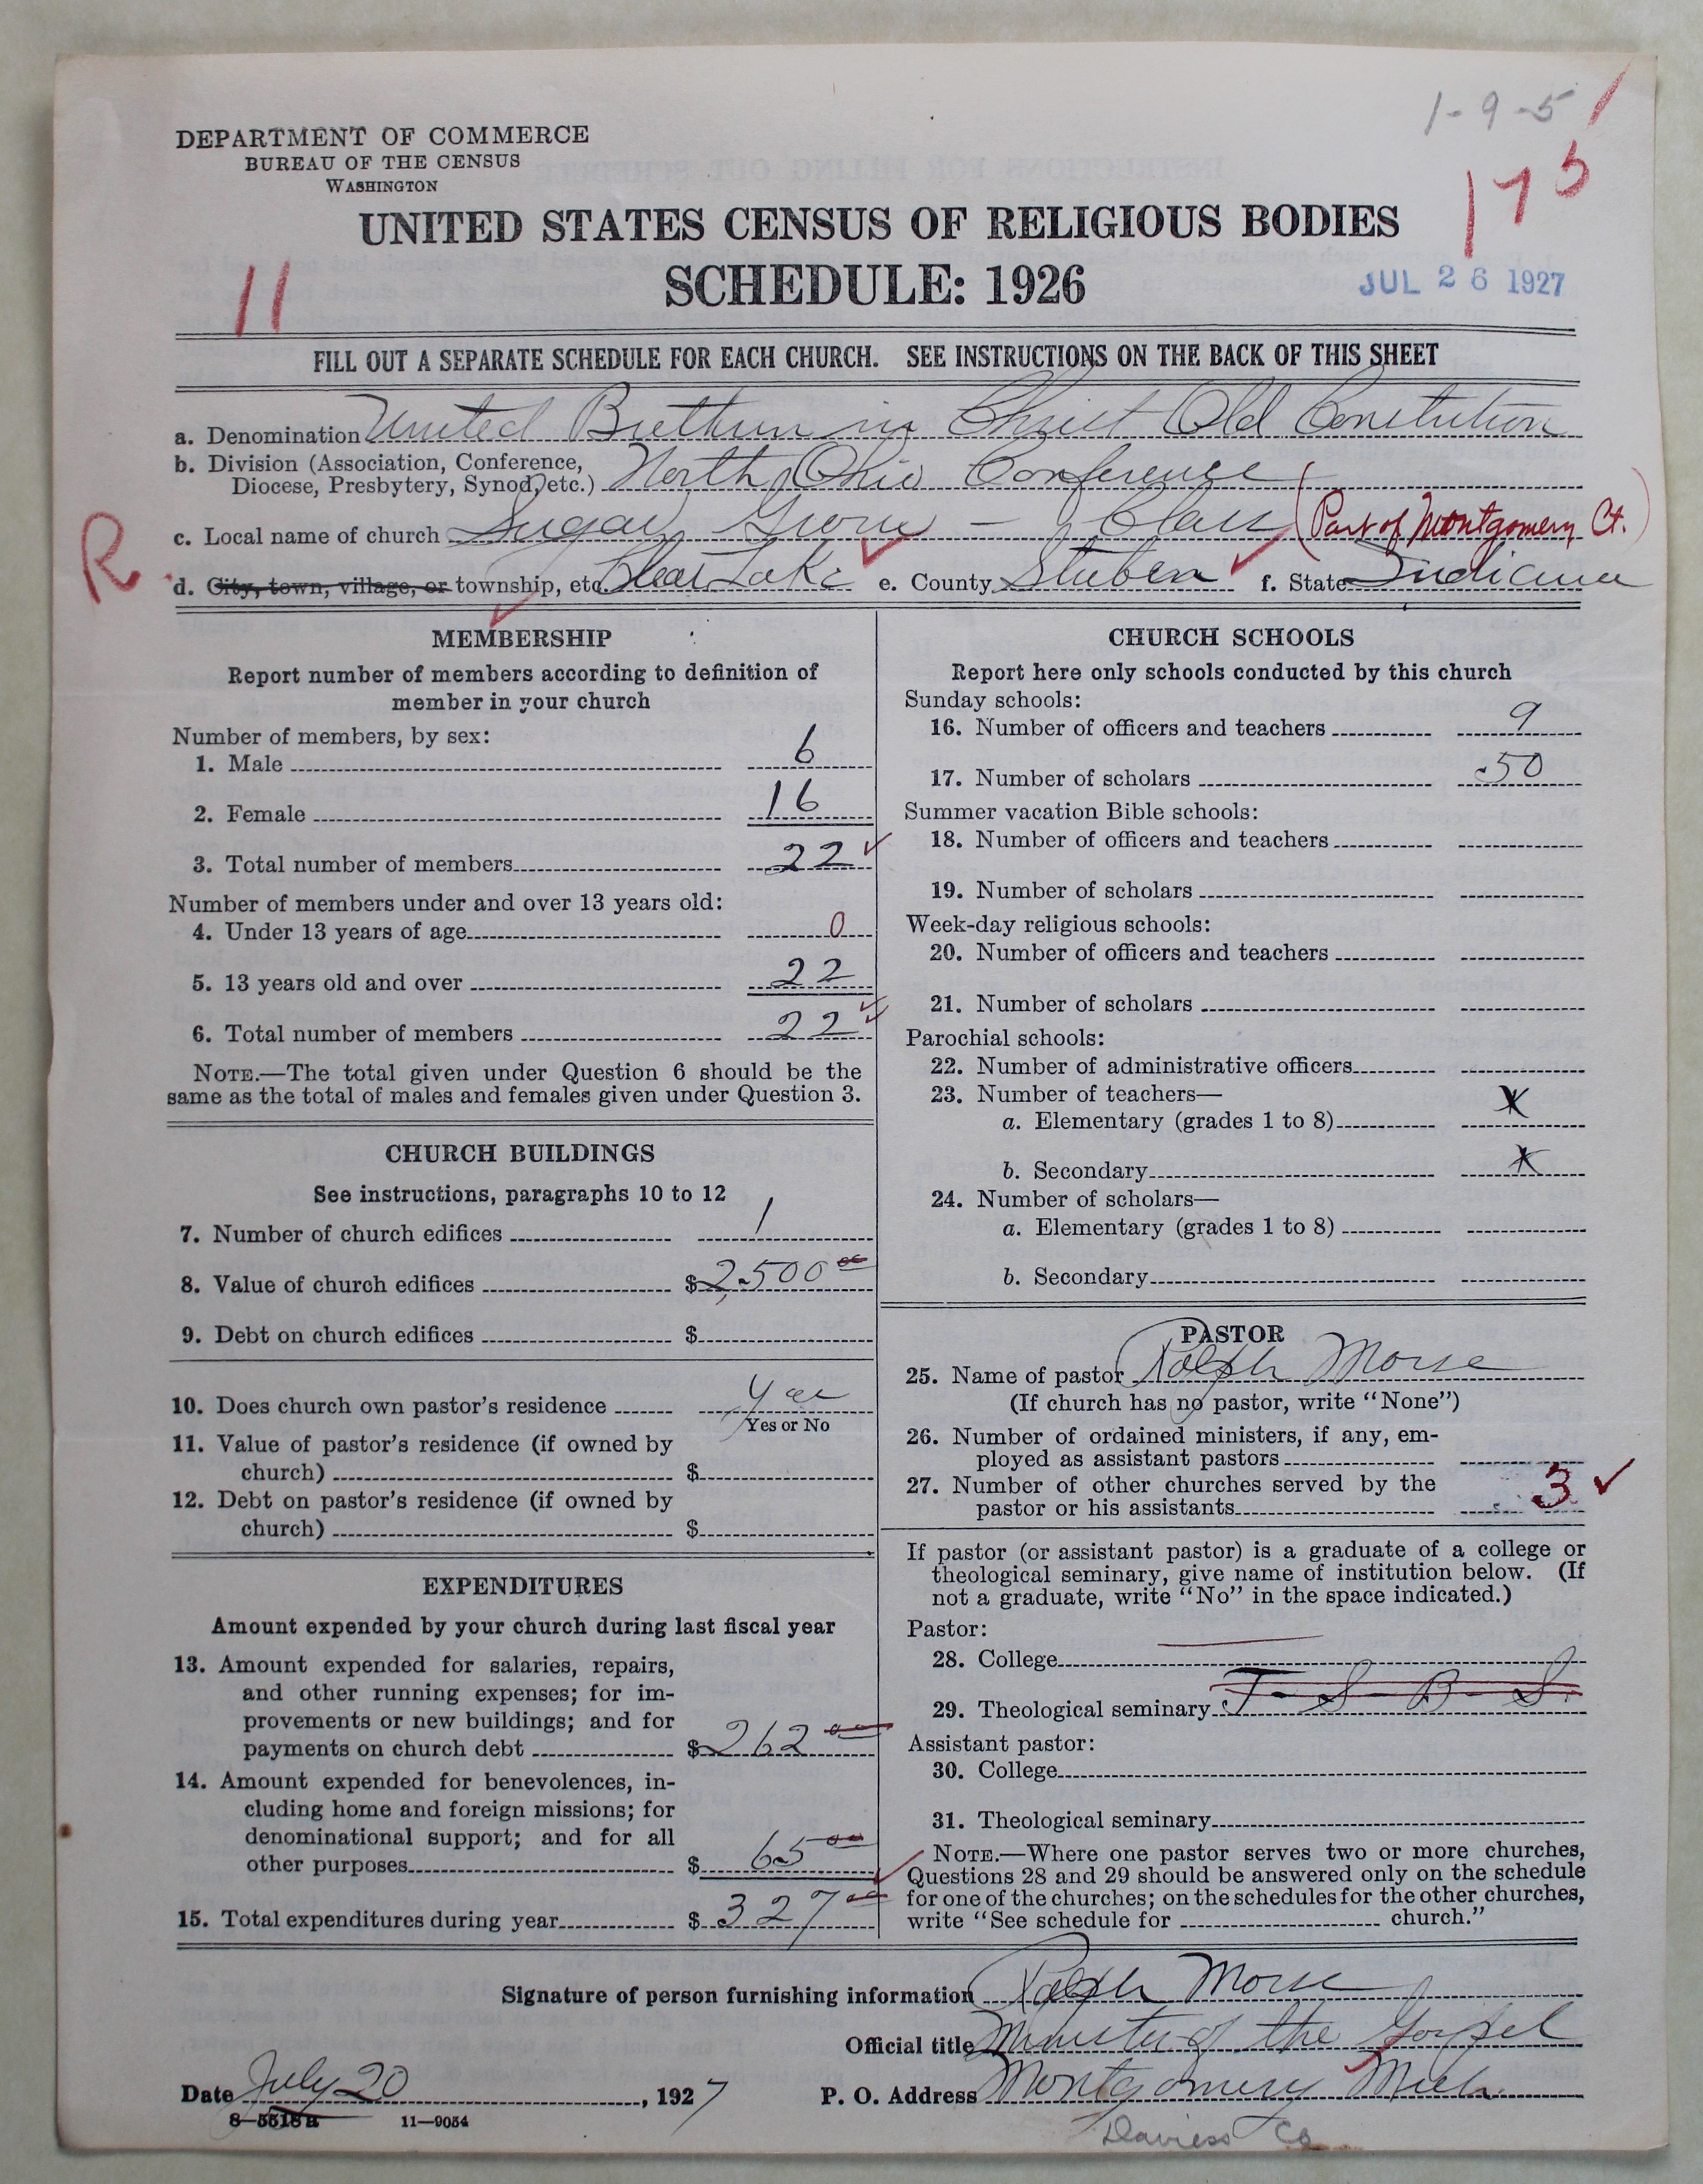 1-9-5
175
DEPARTMENT OF COMMERCE
BUREAU OF THE CENSUS
WASHINGTON
UNITED STATES CENSUS OF RELIGIOUS BODIES
SCHEDULE: 1926
11
JUL 26 1927
FILL OUT A SEPARATE SCHEDULE FOR EACH CHURCH. SEE INSTRUCTIONS ON THE BACK OF THIS SHEET
a. Denomination United Brethren in Christ Old Constitution
b. Division (Association, Conference,
Diocese, Presbytery, Synod, etc.) North Ohio Conference
c. Local name of church Sugar Grove - Class (Part of Montgomery Ct.)
R
d. City, town, village, or township, etc. Clear Lake e. County Stuben f. State Indiana
MEMBERSHIP
Report number of members according to definition of
member in your church
Number of members, by sex:
1. Male 6
2. Female 16
3. Total number of members 22
Number of members under and over 13 years old:
4. Under 13 years of age 0
5. 13 years old and over 22
6. Total number of members 22
NOTE.—The total given under Question 6 should be the
same as the total of males and females given under Question 3.
CHURCH BUILDINGS
See instructions, paragraphs 10 to 12
7. Number of church edifices 1
8. Value of church edifices $2,500 00
9. Debt on church edifices $
10. Does church own pastor's residence Yes
Yes or No
11. Value of pastor's residence (if owned by
church) $
12. Debt on pastor's residence (if owned by
church) $
EXPENDITURES
Amount expended by your church during last fiscal year
13. Amount expended for salaries, repairs,
and other running expenses; for im-
provements or new buildings; and for
payments on church debt $262 00
14. Amount expended for benevolences, in-
cluding home and foreign missions; for
denominational support; and for all
other purposes $ 65 00
15. Total expenditures during year $ 327 00
CHURCH SCHOOLS
Report here only schools conducted by this church
Sunday schools:
16. Number of officers and teachers 9
17. Number of scholars 50
Summer vacation Bible schools:
18. Number of officers and teachers
19. Number of scholars
Week-day religious schools:
20. Number of officers and teachers
21. Number of scholars
Parochial schools:
22. Number of administrative officers
23. Number of teachers—
a. Elementary (grades 1 to 8) X
b. Secondary X
24. Number of scholars—
a. Elementary (grades 1 to 8)
b. Secondary
PASTOR
25. Name of pastor Ralph Morse
(If church has no pastor, write "None")
26. Number of ordained ministers, if any, em-
ployed as assistant pastors
27. Number of other churches served by the
pastor or his assistants 3
If pastor (or assistant pastor) is a graduate of a college or
theological seminary, give name of institution below. (If
not a graduate, write "No" in the space indicated.)
Pastor:
28. College
29. Theological seminary T- S- B- S.
Assistant pastor:
30. College
31. Theological seminary
NOTE.—Where one pastor serves two or more churches,
Questions 28 and 29 should be answered only on the schedule
for one of the churches; on the schedules for the other churches,
write "See schedule for church."
Signature of person furnishing information Ralph Morse
Official title Minister of the Gospel
Date July 20, 1927 P. O. Address Montgomery Mich.
8-5518a 11-9054
Daviess Co